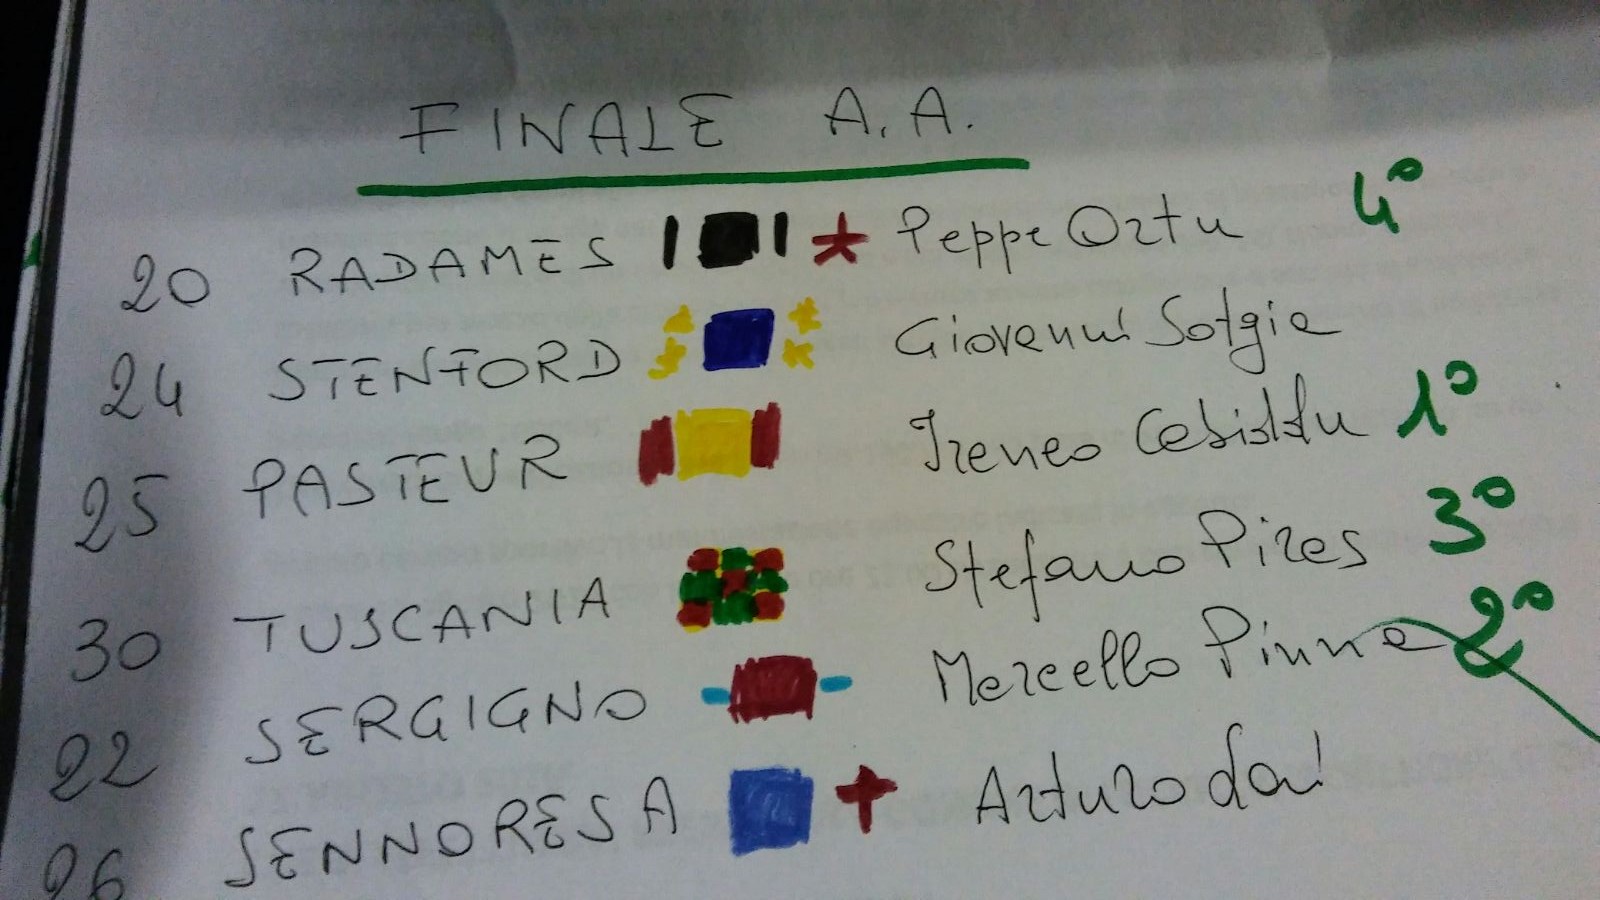 FINALE A.A.
20 RADAMES Peppe Ortu 4°
24 STENFORD Giovanni Sotgia
25 PASTEUR Ireneo Cabiddu 1°
30 TUSCANIA Stefano Pires 3°
22 SERGIGNO Marcello Pinna 2°
26 SENNORESA Arturo Loi